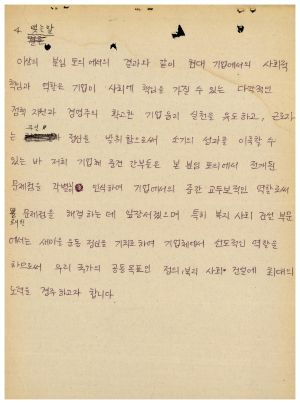 4. 맺는말
이상의 분임 토의에서의 결과와 같이 현대 기업에서의 사회적
책임과 역할은 기업이 사회에 책임을 가질 수 있는 다각적인
정책 지원과 경영주의 확고한 기업윤리 실천을 유도하고, 근로자
는 정신을 발휘함으로써 소기의 성과를 이룩할 수
있는 바 저희 기업체 중견 간부들은 본 분임 토의에서 전개된
문제점을 각별히 인식하여 기업에서의 중간 교두보적인 역할로써
문제점을 해결하는데 앞장서겠으며 특히 복지 사회 건설 부문
에서는 새마을 운동 정신을 기저로하여 기업체에서 선도적인 역할을
하므로써 우리 국가의 공동목표인 정의 복지 사회 건설에 최대의
노력을 경주하고자 합니다.